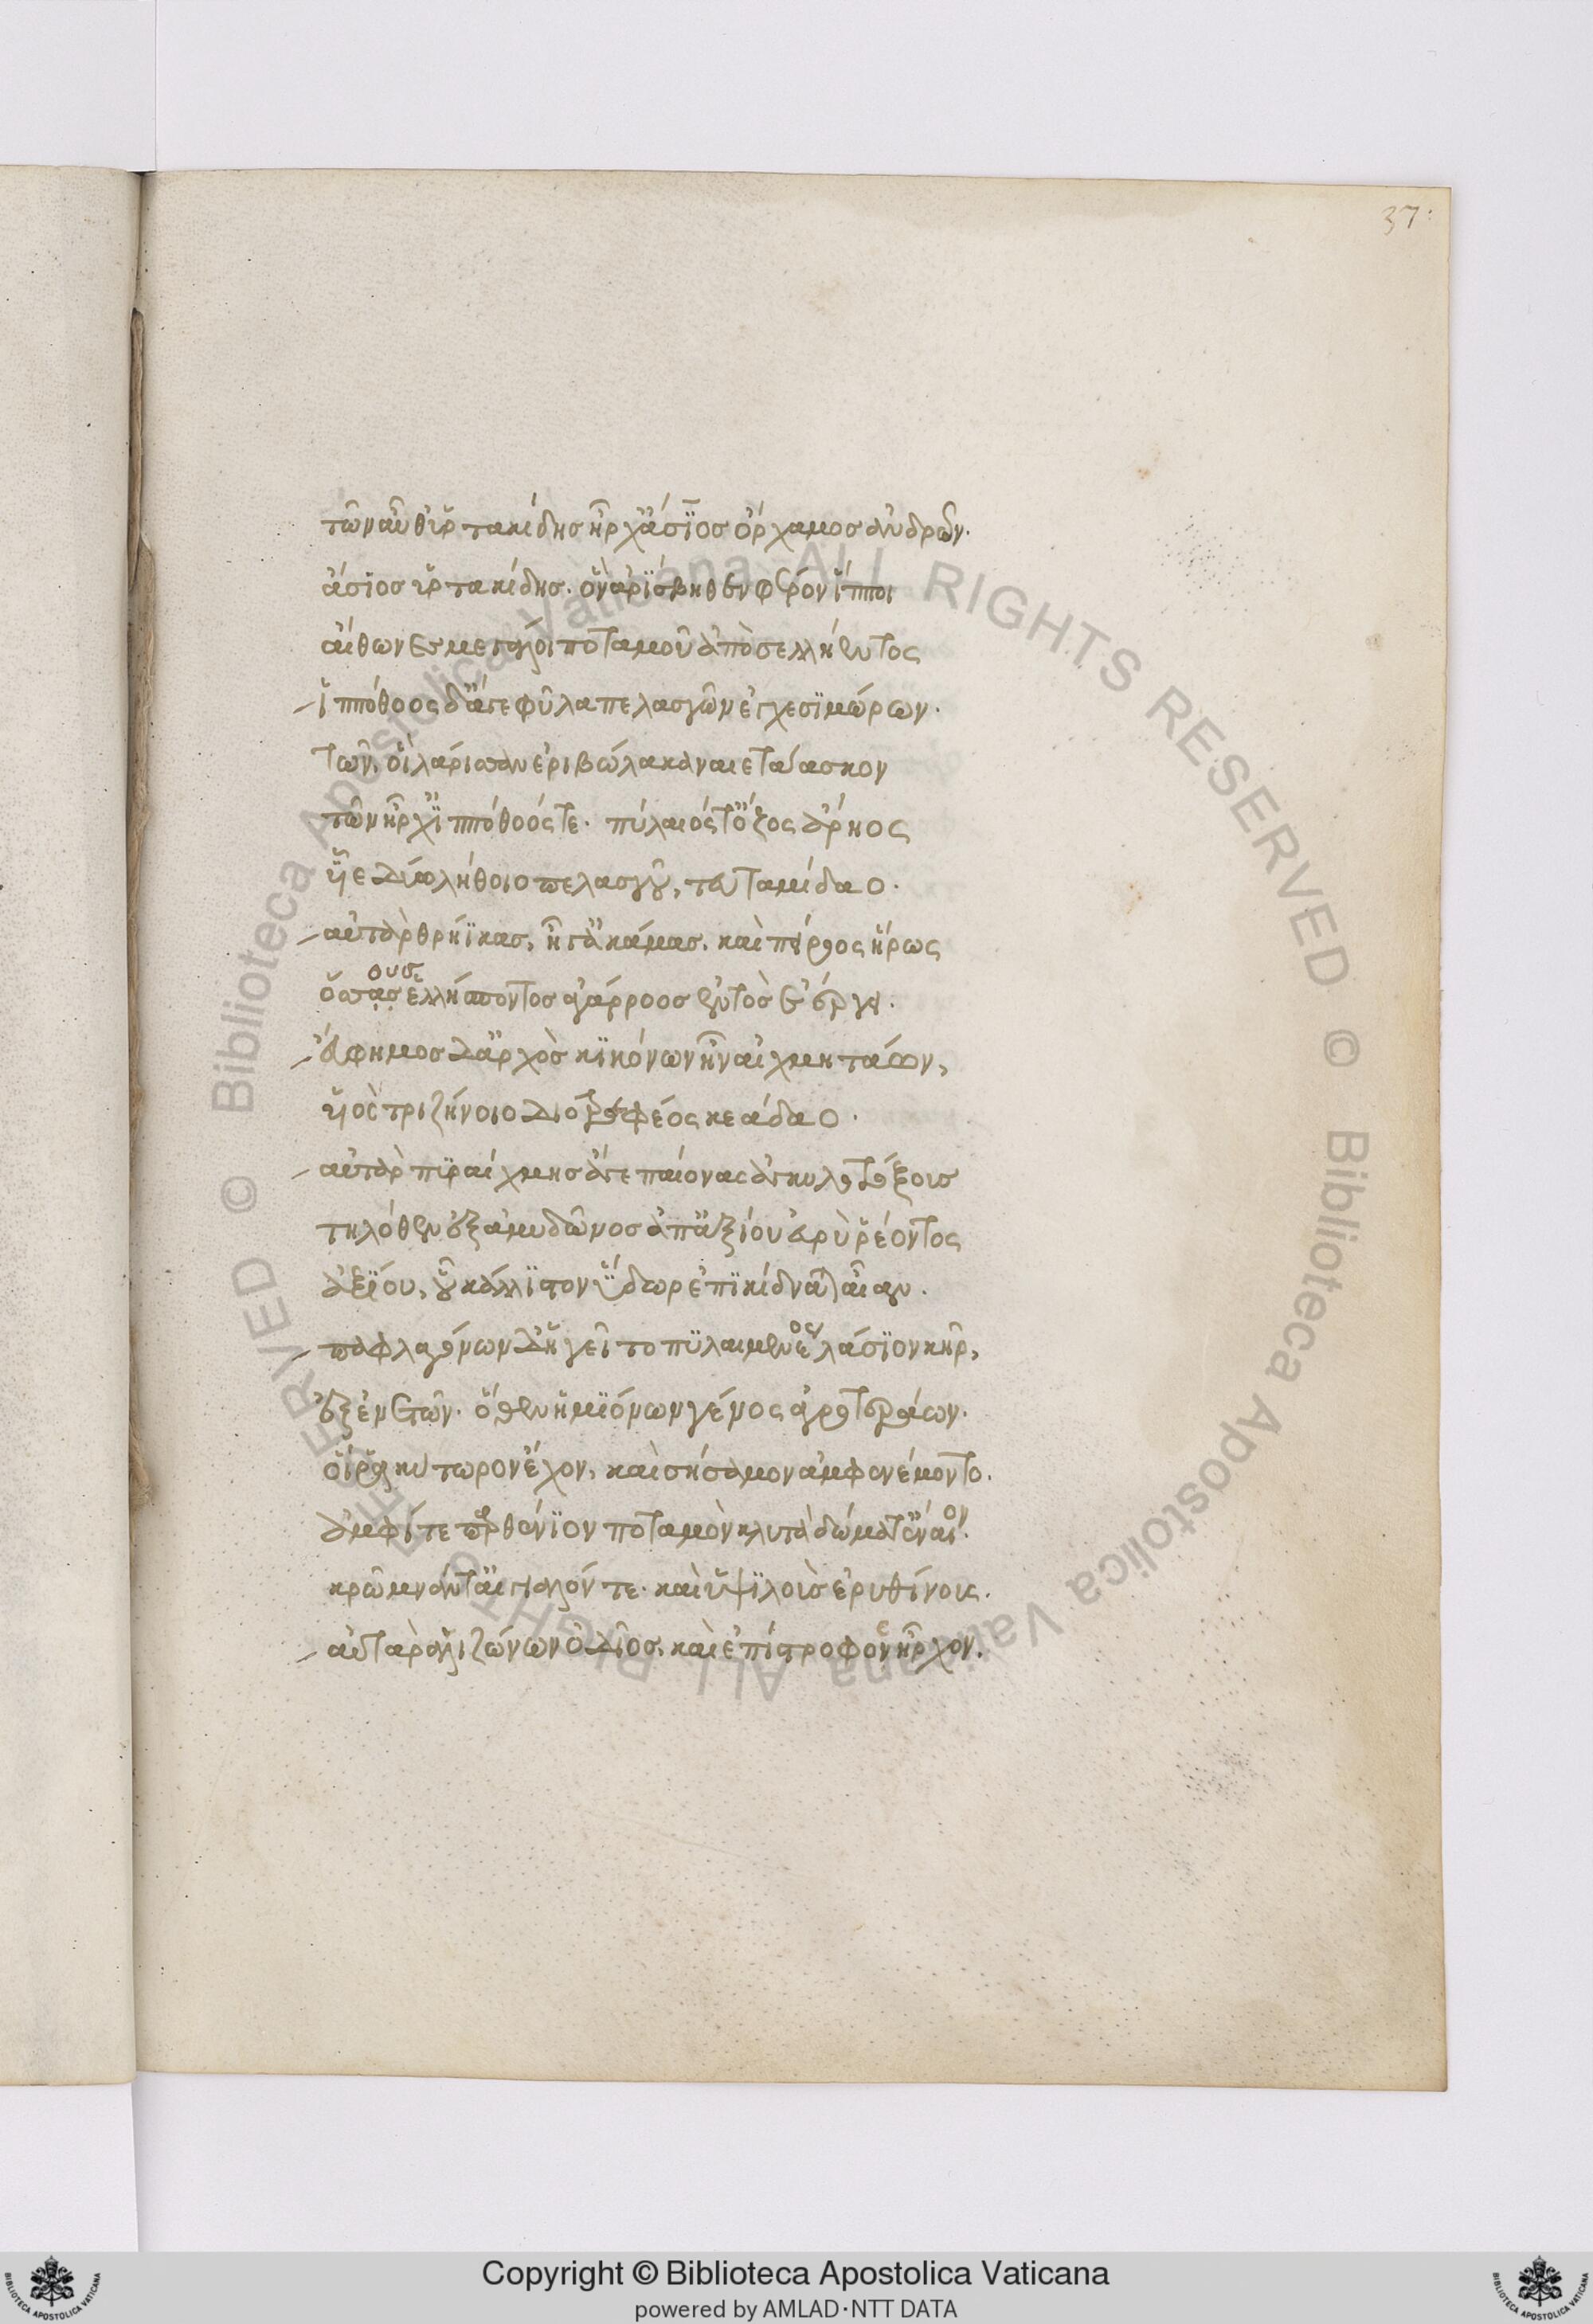 37:
τῶν αὖθ' ὑρτακίδης ἦρχ' ἄσϊος ὄρχαμος ἀνδρῶν.
ἄσϊος ὑρτακίδης. ὃν ἀρίσβηθεν φέρον ἵπποι
αἴθωνες μεγάλοι ποταμοῦ ἀπὸ σελλήεντος
ἱππόθοος δ' ἄγε φῦλα πελασγῶν ἐγχεσϊμώρων.
τῶν, οἳ λάρισσαν ἐριβώλακα ναιετάασκον
τῶν ἦρχ' ἱππόθοός τε. πύλαιός τ' ὄζος ἄρηος
υἷε δύω λήθοιο πελασγοῦ, τευταμίδαο.
αὐτὰρ θρήϊκας, ἦγ' ἀκάμας, καὶ πείροος ἥρως
ὅσσας ἑλλήσποντος ἀγάρροος ἐντὸς ἐέργει.
ους
εὔφημος δ' ἀρχὸς κϊκόνων ἦν αἰχμητάων,
υἱὸς τριζήνοιο διοτρεφέος κεάδαο.
αὐτὰρ πϋραίχμης ἄγε παίονας ἀγκυλοτόξους
τηλόθεν ἐξ ἀμυδῶνος ἀπ' ἀξιοῦ εὐρὺ ῥέοντος
ἀξϊοῦ, οὗ κάλλιστον ὕδωρ ἐπϊκίδναται αἶαν.
παφλαγόνων δ' ἡγεῖτο πϋλαιμένεος λάσϊον κῆρ,
ἐξ ἐνετῶν. ὅθεν ἡμϊόνων γένος ἀγροτεράων.
οἵ ῥα κύτωρον ἔχον, καὶ σήσαμον ἀμφενέμοντο.
ἀμφί τε παρθένϊον ποταμὸν κλυτὰ δώματ' ἔναιον.
κρῶμνάν τ' αἰγιαλόν τε. καὶ ὑψϊλοὺς ἐρυθίνους.
αὐτὰρ ἁλιζώνων ὀδίος, καὶ ἐπίστροφος ἦρχον.
Copyright © Biblioteca Apostolica Vaticana
powered by AMLAD·NTT DATA